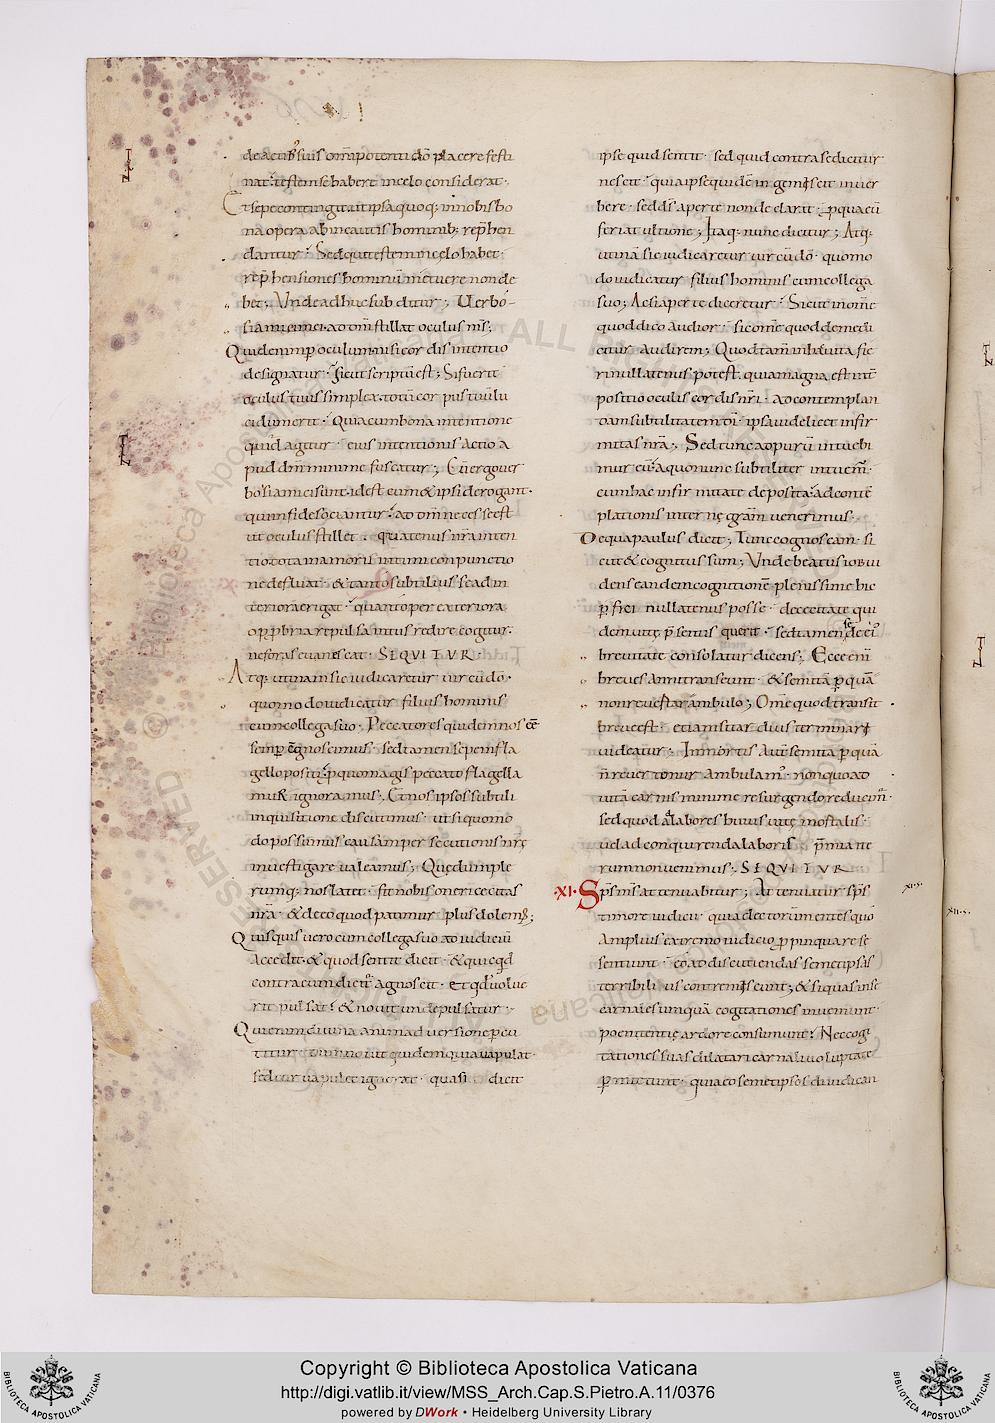 de actib; suis omipotenti dõ placere festi
nat; testem se habere in celo considerat;
Et sepe contingit ut ipsa quoq; in nobis bo
na opera ab incautis hominib; rep̄hen
dantur; Sed qui testem in celo habet
rep̄hensiones hominũ metuere non de
bet; Unde adhuc subditur; Uerbo
si amici mei. ad dm̄ stillat oculus m̄s;
Quid enim p̄ oculum nisi cordis intentio
designatur; sicut scriptũ est; Si fuerit
oculus tuus simplex. totũ corpus tuũ lu
cidum erit; Quia cum bona intentione
quid agitur. eius intentionis actio a
pud dm̄ minime fuscatur; Cũ ergo uer
bosi amici sunt. id est cum & ipsi derogant.
qui in fide sociantur; ad dm̄ necesse est
ut oculus stillet. quatenus nr̄a inten
tio tota in amoris intimi conpunctio
ne defluat. & tanto subtilius se ad in
teriora erigat. quanto per exteriora
opprobria repulsa intus redire cogitur.
ne foras euanescat. SEQUITUR.
Atq; utinam sic iudicaretur uir cũ dõ.
quomodo iudicatur filius hominis
cum collega suo. Peccatores quidem nos eē
semp̄ cognoscimus. sed tamen sepe in fla
gello positi. p̄ quo magis peccato flagella
mur ignoramus; Et nos ipsos subtili
inquisitione discutimus. ut si quomo
do possimus causam percussionis nr̄ę
inuestigare ualeamus; Que dum ple
rumq; nos latet. fit nobis oneri cecitas
nr̄a. & de eo quod patimur plus dolemus;
Quisquis uero cum collega suo ad iudiciũ
accedit. & quod sentit dicit. & quicquid
contra eum dicitur agnoscit. et quod uolue
rit pulsat. & nouit unde pulsatur.
Qui enim diuina animaduersione p̄cu
titur. dum nouit quidem quia uapulat.
sed cur uapulet ignorat. quasi dicit
ipse quid sentit. sed quid contra se dicitur
nescit. quia ipse quidẽ ingemiscit in uer
bere. sed ds̄ aperte non declarat. p̄ qua cũ
feriat ultione; Itaq; nunc dicitur; Atq;
utinã sic iudicaretur uir cũ dõ. quomo
do iudicatur filius hominis cum collega
suo; Ac si aperte diceretur; Sicut in om̄e
quod dico audior. sic om̄e quod de me di
citur audirem; Quod tam̄ in hac uita fie
ri nullatenus potest. quia magna est int̄
positio oculis cordis nr̄i. ad contemplan
dam subtilitatem dī. ipsa uidelicet infir
mitas nr̄a; Sed tunc ad purũ intuebi
mur eũ. a quo nunc subtiliter intuem̄.
cum hac infirmitate deposita. ad contẽ
plationis internę gram̄ uenerimus.
De qua paulus dicit; Tunc cognoscam. si
cut & cognitus sum; Unde beatus iob ui
dens eandem cognitionẽ plenissime hic
p̄frci nullatenus posse. de cecitate qui
dem uitę p̄sentis querit. sed tamen se de ei;
breuitate consolatur dicens; Ecce enī
breues anni transeunt. & semitã p̄ quã
non reuertar ambulo; Om̄e quod transit.
breue est. etiam si tardius terminari
uideatur; In mortis aut̄ semita p̄ quã
n̄ reuertemur ambulam;. non quo ad
uitã carnis minime resurgendo reducim̄.
sed quod ad labores huius uitę mortalis.
uel ad conquirenda laborib; p̄mia ite
rum non uenimus; SEQUITUR
·XI· Sp̄s m̄s attenuabitur; Attenuatur sp̄s
timore iudicii. quia electorum mentes quo
amplius extremo iudicio p̄pinquare se
sentiunt. eo ad discutiendas semetipsas
terribilius contremiscunt; & si quas in se
carnales umquã cogitationes inueniunt
poenitentię ardore consumunt; Nec cogi
tationes suas dilatari carnali uoluptate
p̄mittunt. quia eo semetipsos diiudican
Copyright © Biblioteca Apostolica Vaticana
http://digi.vatlib.it/view/MSS_Arch.Cap.S.Pietro.A.11/0376
powered by DWork • Heidelberg University Library